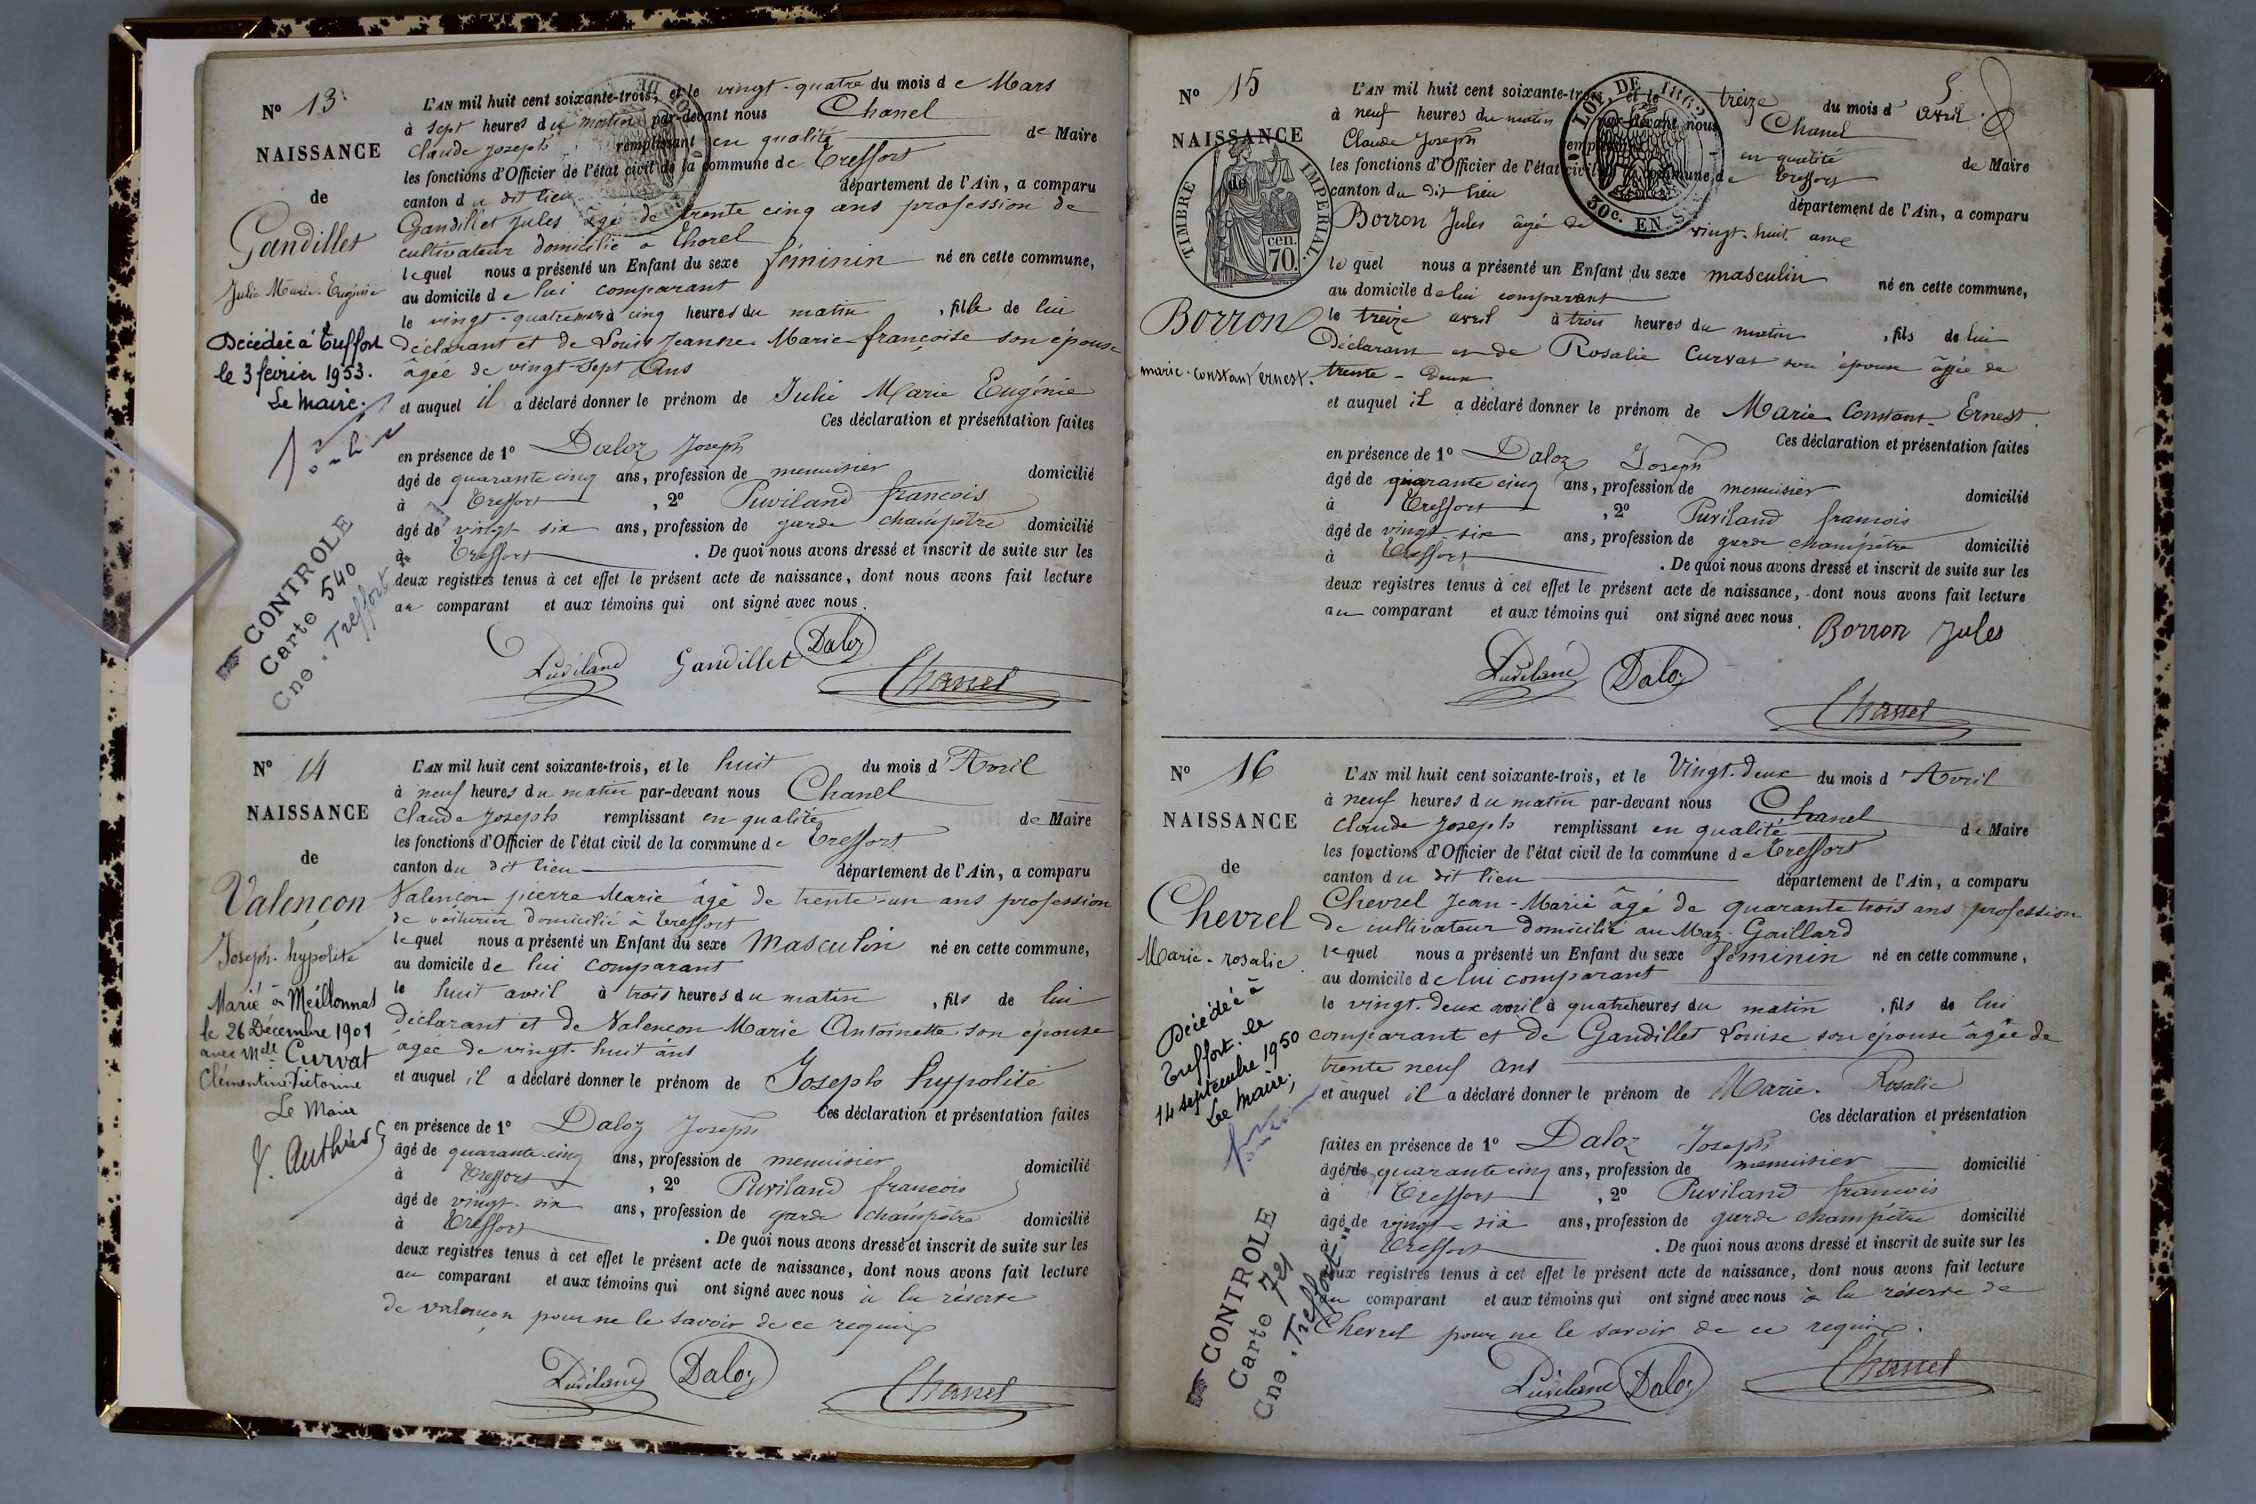 N° 13
NAISSANCE
de
Gandillet
Julie Marie-Eugénie
Décédée à Treffort
le 3 février 1953.
Le Maire.
CONTROLE
Carte 540
Cne. Treffort
L'AN mil huit cent soixante-trois, et le vingt-quatre du mois de Mars
à sept heures du matin par-devant nous Chanel
Claude Joseph remplissant en qualité de Maire
les fonctions d'Officier de l'état civil de la commune de Treffort
canton du dit lieu département de l'Ain, a comparu
Gandillet Jules âgé de trente cinq ans profession de
cultivateur domicilié à Thorel
lequel nous a présenté un Enfant du sexe féminin né en cette commune,
au domicile de lui comparant
le vingt-quatre mars à cinq heures du matin, fille de lui
déclarant et de Louis Jeanne Marie-françoise son épouse
âgée de vingt-sept Ans
et auquel il a déclaré donner le prénom de Julie Marie Eugénie
Ces déclaration et présentation faites
en présence de 1° Daloz Joseph
âgé de quarante cinq ans, profession de menuisier domicilié
à Treffort, 2° Puviland françois
âgé de vingt six ans, profession de garde champêtre domicilié
à Treffort. De quoi nous avons dressé et inscrit de suite sur les
deux registres tenus à cet effet le présent acte de naissance, dont nous avons fait lecture
au comparant et aux témoins qui ont signé avec nous.
Puviland Gandillet Daloz
Chanel
N° 14
NAISSANCE
de
Valençon
Joseph-hypolite
Marié à Meillonnas
le 26 Décembre 1901
avec Melle Curvat
Clémentine Victorine
Le Maire
J. Authier
L'AN mil huit cent soixante-trois, et le huit du mois d'Avril
à neuf heures du matin par-devant nous Chanel
Claude Joseph remplissant en qualité de Maire
les fonctions d'Officier de l'état civil de la commune de Treffort
canton du dit lieu département de l'Ain, a comparu
Valençon pierre Marie âgé de trente-un ans profession
de voiturier domicilié à Treffort
lequel nous a présenté un Enfant du sexe Masculin né en cette commune,
au domicile de lui comparant
le huit avril à trois heures du matin, fils de lui
déclarant et de Valencon Marie Antoinette son épouse
âgée de vingt-huit ans
et auquel il a déclaré donner le prénom de Joseph hyppolite
Ces déclaration et présentation faites
en présence de 1° Daloz Joseph
âgé de quarante-cinq ans, profession de menuisier domicilié
à Treffort, 2° Puviland francois
âgé de vingt-six ans, profession de garde champêtre domicilié
à Treffort. De quoi nous avons dressé et inscrit de suite sur les
deux registres tenus à cet effet le présent acte de naissance, dont nous avons fait lecture
au comparant et aux témoins qui ont signé avec nous a la réserve
de valençon pour ne le savoir de ce requis
Puviland Daloz Chanel
5
N° 15
NAISSANCE
de
TIMBRE IMPERIAL.
cen. 70.
LOI DE 1862
30c. EN S
Borron
marie-constant ernest.
L'AN mil huit cent soixante-trois, et le treize du mois d'avril
à neuf heures du matin par-devant nous Chanel
Claude Joseph remplissant en qualité de Maire
les fonctions d'Officier de l'état civil de la commune de Treffort
canton du dit lieu département de l'Ain, a comparu
Borron Jules âgé de vingt-huit ans
lequel nous a présenté un Enfant du sexe masculin né en cette commune,
au domicile de lui comparant
le treize avril à trois heures du matin, fils de lui
Déclarant et de Rosalie Curvat son épouse âgée de
trente-deux
et auquel il a déclaré donner le prénom de Marie Constant-Ernest.
Ces déclaration et présentation faites
en présence de 1° Daloz Joseph
âgé de quarante cinq ans, profession de menuisier domicilié
à Treffort, 2° Puviland francois
âgé de vingt-six ans, profession de garde champêtre domicilié
à Treffort. De quoi nous avons dressé et inscrit de suite sur les
deux registres tenus à cet effet le présent acte de naissance, dont nous avons fait lecture
au comparant et aux témoins qui ont signé avec nous.
Borron Jules
Puviland Daloz
Chanel
N° 16
NAISSANCE
de
Chevrel
Marie-rosalie
Décédée à
Treffort le
14 septembre 1950
Le Maire,
CONTROLE
Carte 721
Cne. Treffort
L'AN mil huit cent soixante-trois, et le Vingt-deux du mois d'Avril
à neuf heures du matin par-devant nous Chanel
Claude Joseph remplissant en qualité de Maire
les fonctions d'Officier de l'état civil de la commune de Treffort
canton du dit lieu département de l'Ain, a comparu
Chevrel Jean-Marie âgé de quarante trois ans profession
de cultivateur domicilié au Maz-Gaillard
lequel nous a présenté un Enfant du sexe féminin né en cette commune,
au domicile de lui comparant
le vingt-deux avril à quatre heures du matin, fils de lui
comparant et de Gandillet Louise son épouse âgée de
trente neuf ans
et auquel il a déclaré donner le prénom de Marie-Rosalie
Ces déclaration et présentation
faites en présence de 1° Daloz Joseph
âgé de quarante cinq ans, profession de menuisier domicilié
à Treffort, 2° Puviland francois
âgé de vingt-six ans, profession de garde champêtre domicilié
à Treffort. De quoi nous avons dressé et inscrit de suite sur les
deux registres tenus à cet effet le présent acte de naissance, dont nous avons fait lecture
au comparant et aux témoins qui ont signé avec nous à la réserve de
Chevrel pour ne le savoir de ce requis.
Puviland Daloz Chanel